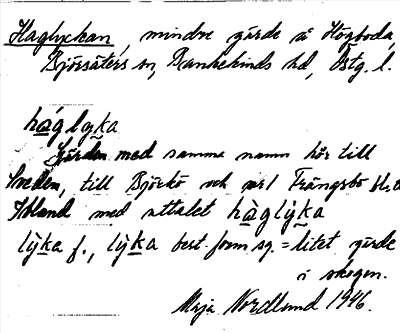 Haglyckan, mindre gärde å Högboda,
Björsäters sn, Bankekinds hd, Östg. l.
håglyka
Gärden med samma namn hör till
Sveden, till Björkö och vid Trängsbo
Ibland med uttalet hàglỳka
lỳka f., lỳka best. form sg. = litet gärde
i skogen.
Maja Nordlund 1946.